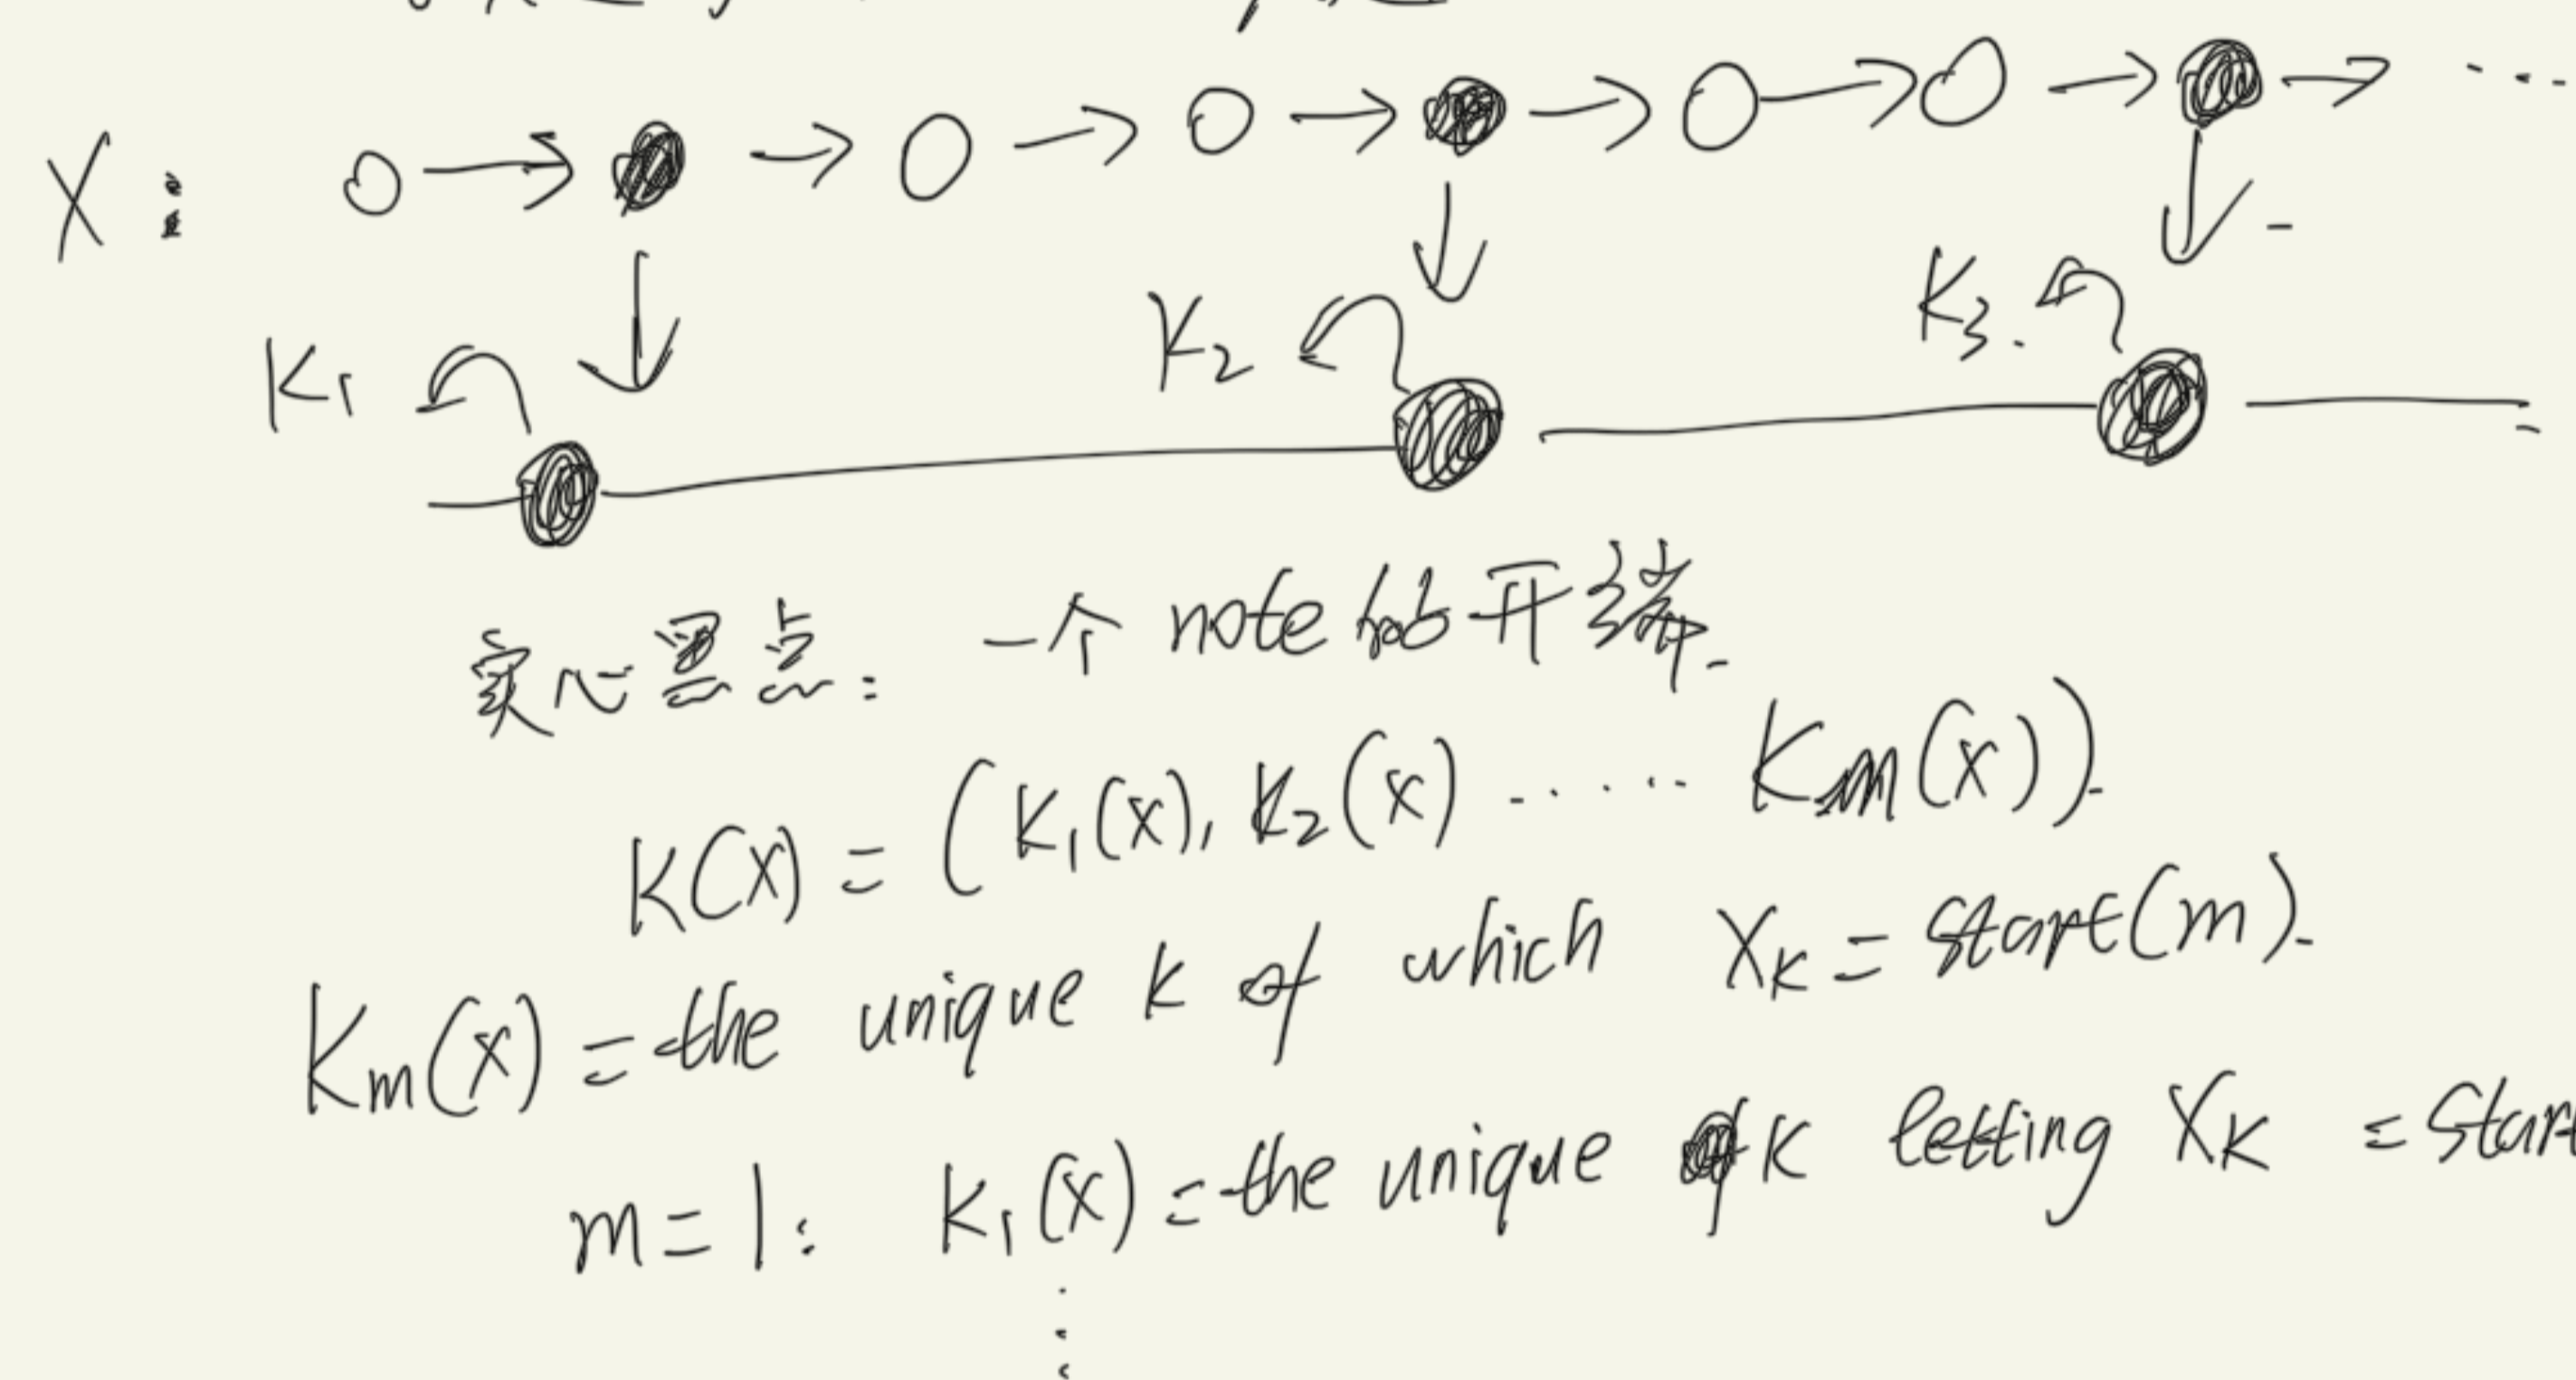 X:
K1 K2 K3.
实心黑点: 一个 note 的开端.
K(x) = (K1(x), K2(x) ..... Km(x)).
Km(x) = the unique k of which XK = start(m).
m=1: K1(x) = the unique K letting XK = Star